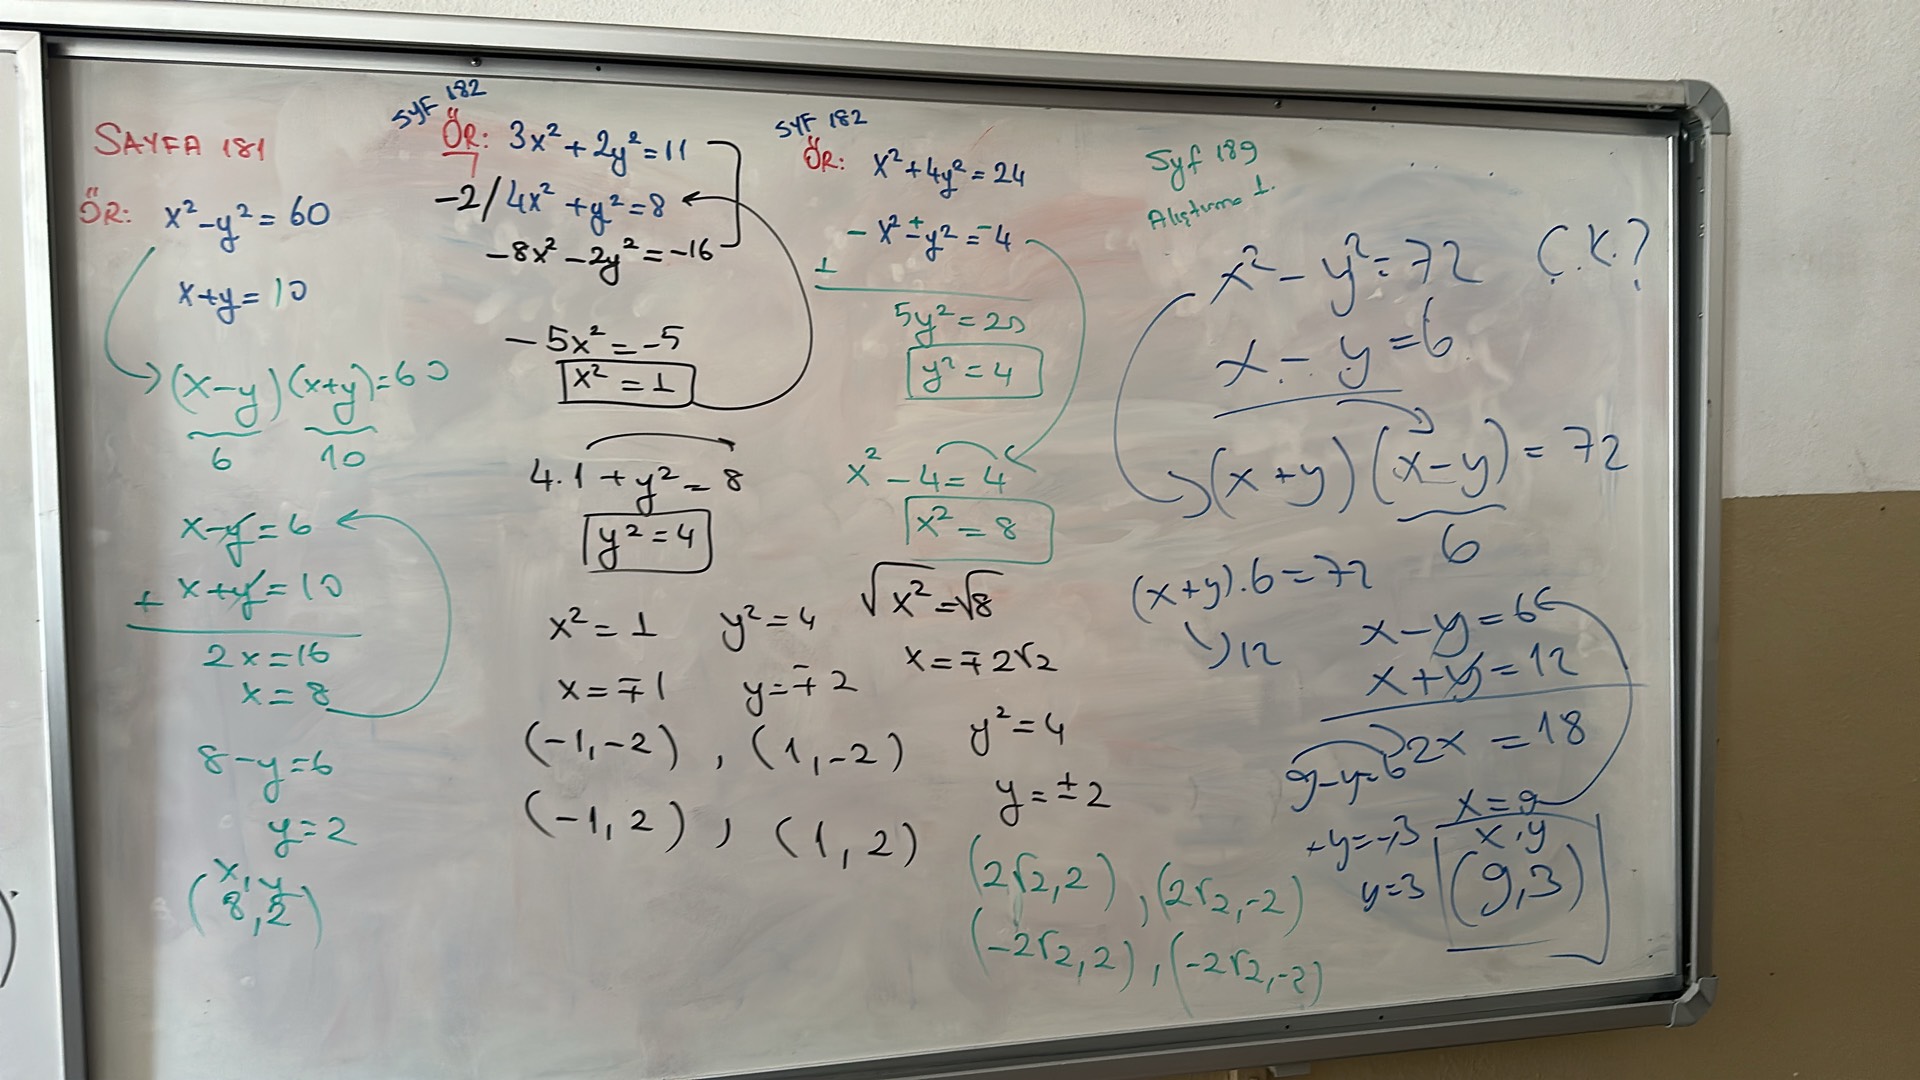 SAYFA 181
ÖR: x² - y² = 60
x + y = 10
(x - y) (x + y) = 60
6 10
x - y = 6
+ x + y = 10
2x = 16
x = 8
8 - y = 6
y = 2
x, y
(8, 2)
SYF 182
ÖR: 3x² + 2y² = 11
-2/ 4x² + y² = 8
-8x² - 2y² = -16
-5x² = -5
x² = 1
4.1 + y² = 8
y² = 4
x² = 1 y² = 4
x = ∓1 y = ∓2
(-1, -2), (1, -2)
(-1, 2), (1, 2)
SYF 182
ÖR: x² + 4y² = 24
- x² ∓ y² = -4
+
5y² = 20
y² = 4
x² - 4 = 4
x² = 8
√x² = √8
x = ∓2√2
y² = 4
y = ±2
(2√2, 2), (2√2, -2)
(-2√2, 2), (-2√2, -2)
Syf 189
Alıştırma 1.
x² - y² = 72 Ç.K.?
x - y = 6
(x + y) (x - y) = 72
6
(x + y).6 = 72
12
x - y = 6
x + y = 12
2x = 18
x = 9
9 - y = 6
+y = -,3
y = 3
x, y
(9, 3)